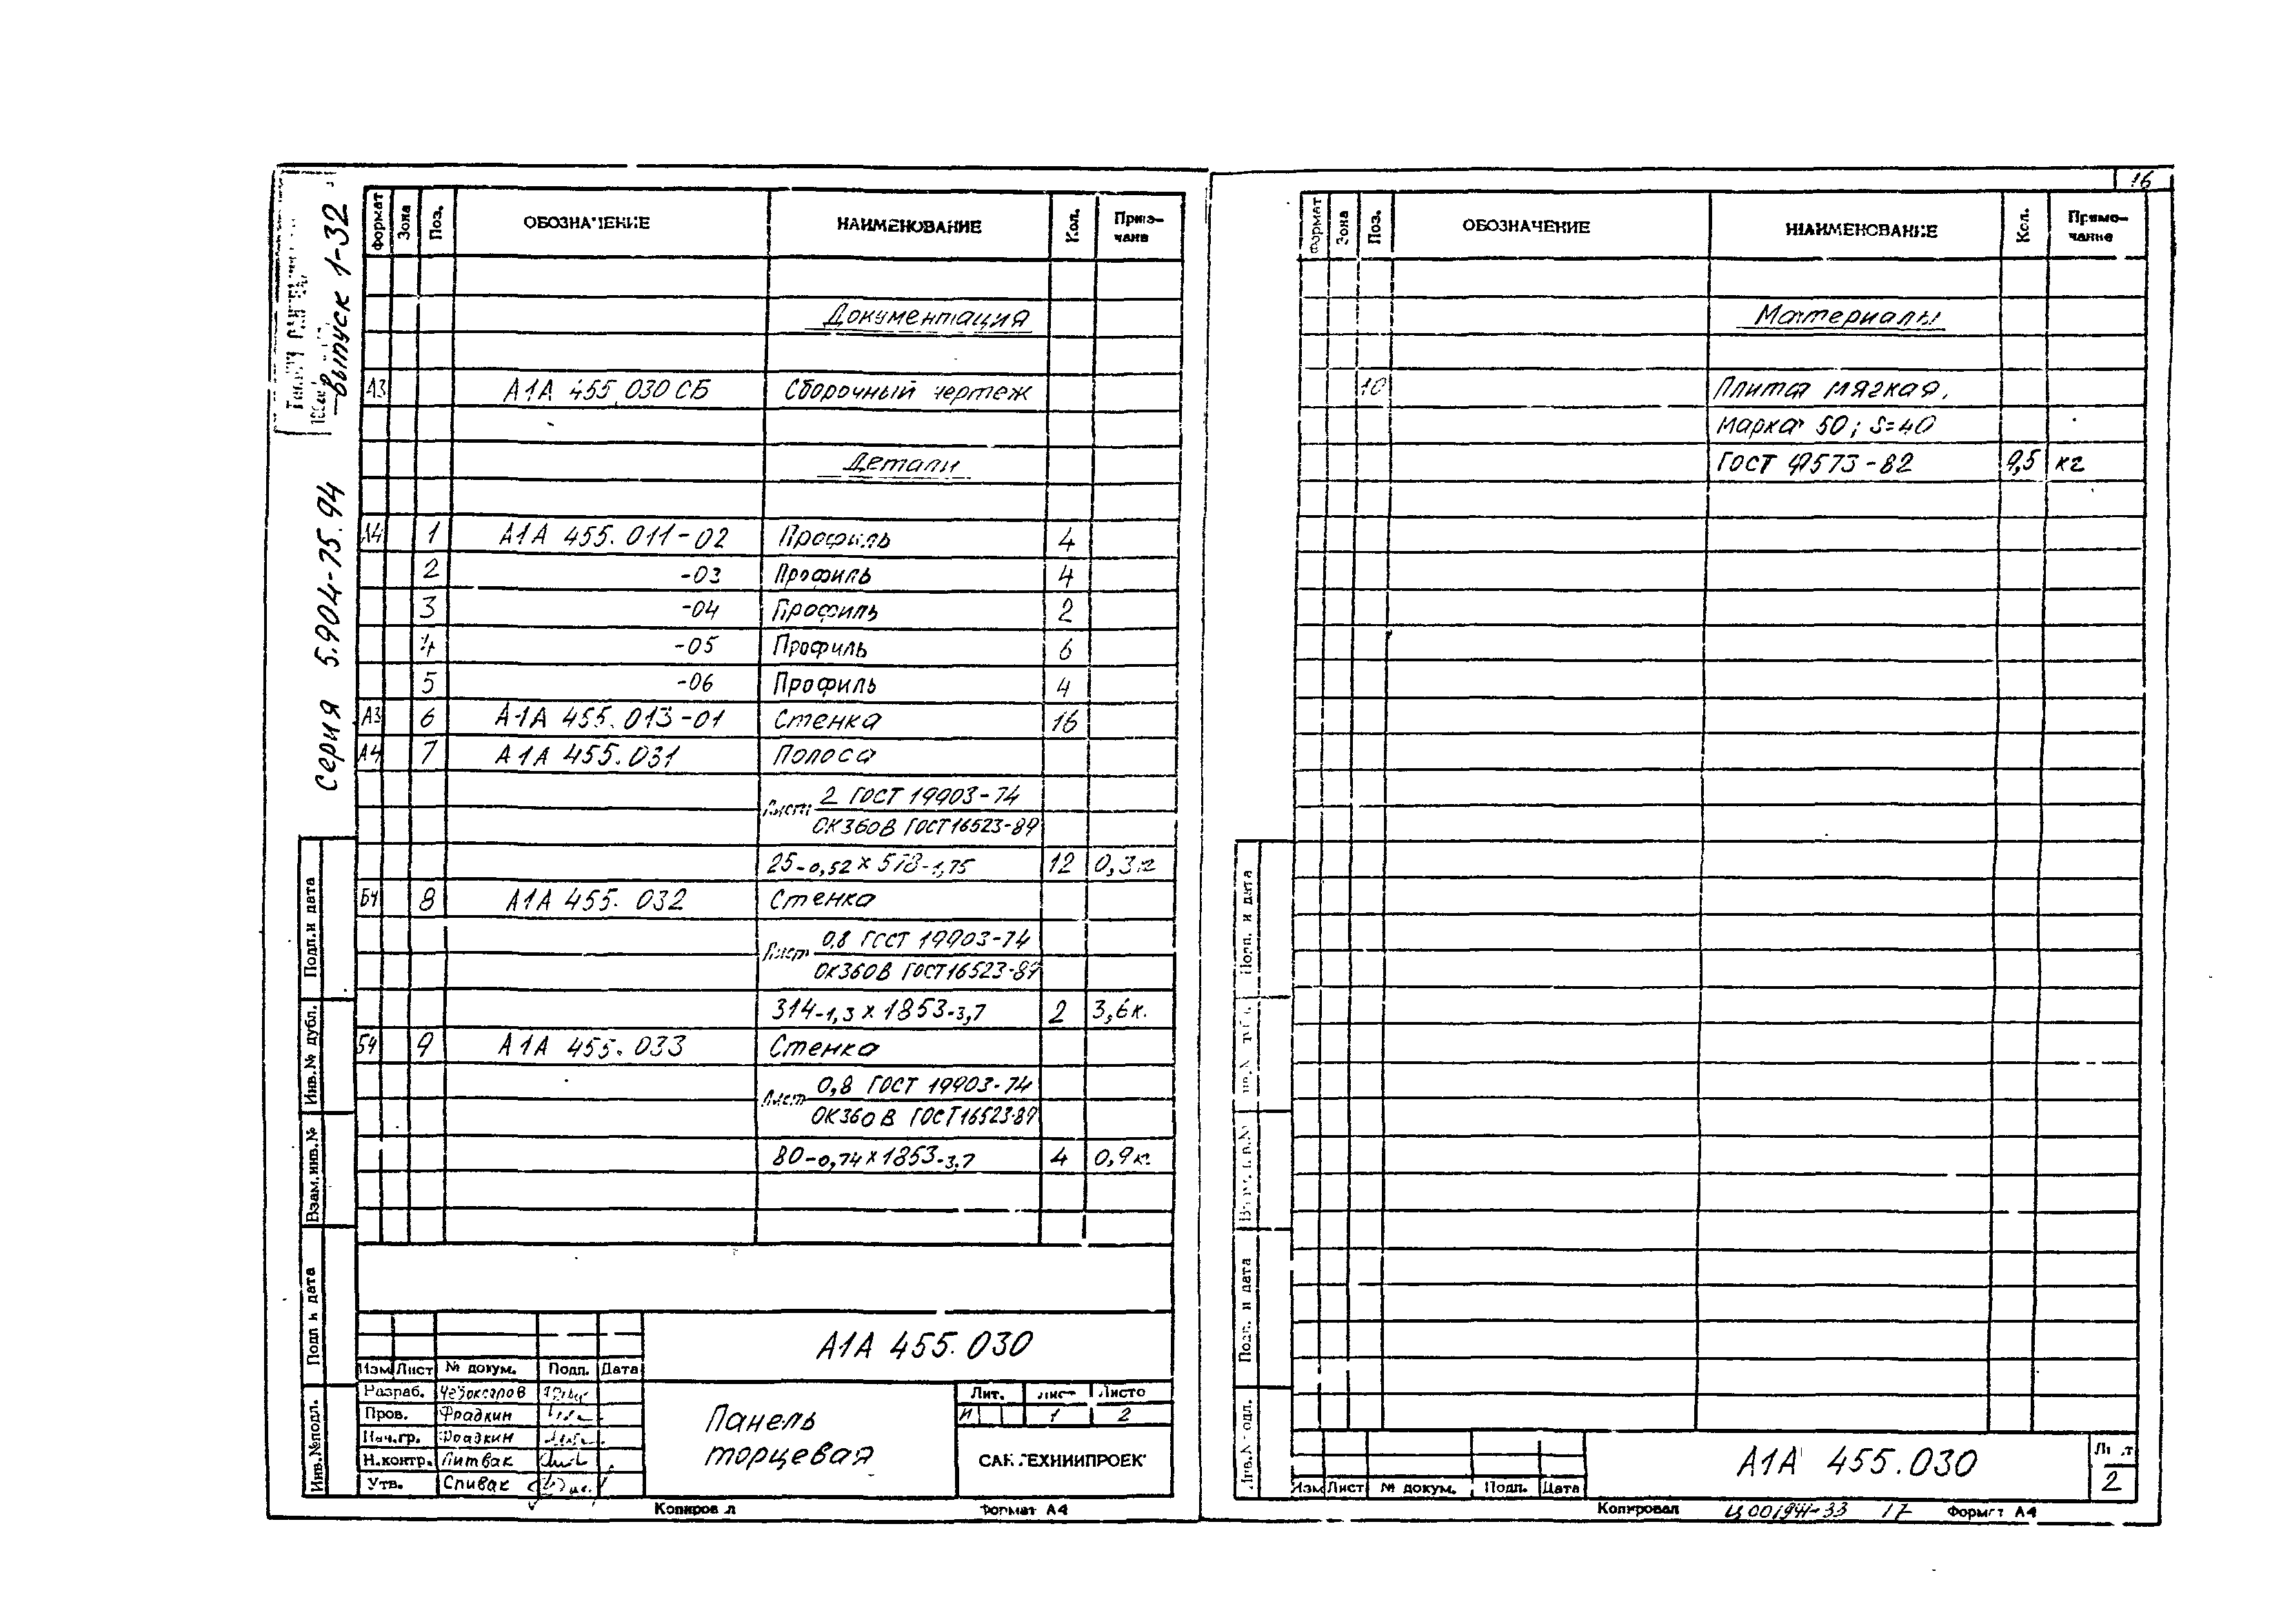 Серия 5.904-75.94 выпуск 1-32
Формат Зона Поз. ОБОЗНАЧЕНИЕ НАИМЕНОВАНИЕ Кол. Приме-
чание
Документация
А3 А1А 455.030 СБ Сборочный чертеж
Детали
А4 1 А1А 455.011-02 Профиль 4
2 -03 Профиль 4
3 -04 Профиль 2
4 -05 Профиль 6
5 -06 Профиль 4
А3 6 А1А 455.013-01 Стенка 16
А4 7 А1А 455.031 Полоса
Лист 2 ГОСТ 19903-74
ОК360В ГОСТ16523-89
25-0,52 х 578-1,75 12 0,3кг
БЧ 8 А1А 455.032 Стенка
Лист 0,8 ГОСТ 19903-74
ОК360В ГОСТ16523-89
314-1,3 х 1853-3,7 2 3,6к.
БЧ 9 А1А 455.033 Стенка
Лист 0,8 ГОСТ 19903-74
ОК360В ГОСТ16523-89
80-0,74 х 1853-3,7 4 0,9к.
Подп.и дата
Инв.№ дубл.
Взам.инв.№
Подп и дата
Инв.№подл.
А1А 455.030
Изм Лист № докум. Подп. Дата
Разраб. Чебоксаров
Пров. Фрадкин
Нач.гр. Фрадкин
Н.контр. Литвак
Утв. Спивак
Панель
торцевая
Лит. Лист Листо
И 1 2
САНТЕХНИИПРОЕКТ
Копировал Формат А4
16
Формат Зона Поз. ОБОЗНАЧЕНИЕ НАИМЕНОВАНИЕ Кол. Приме-
чание
Материалы
10 Плита мягкая,
марка 50; S=40
ГОСТ 9573-82 9,5 кг
Подп. и дата
Подп. и дата
А1А 455.030
Лист
2
Изм Лист № докум. Подп. Дата
Копировал Ц00194-33 17 Формат А4